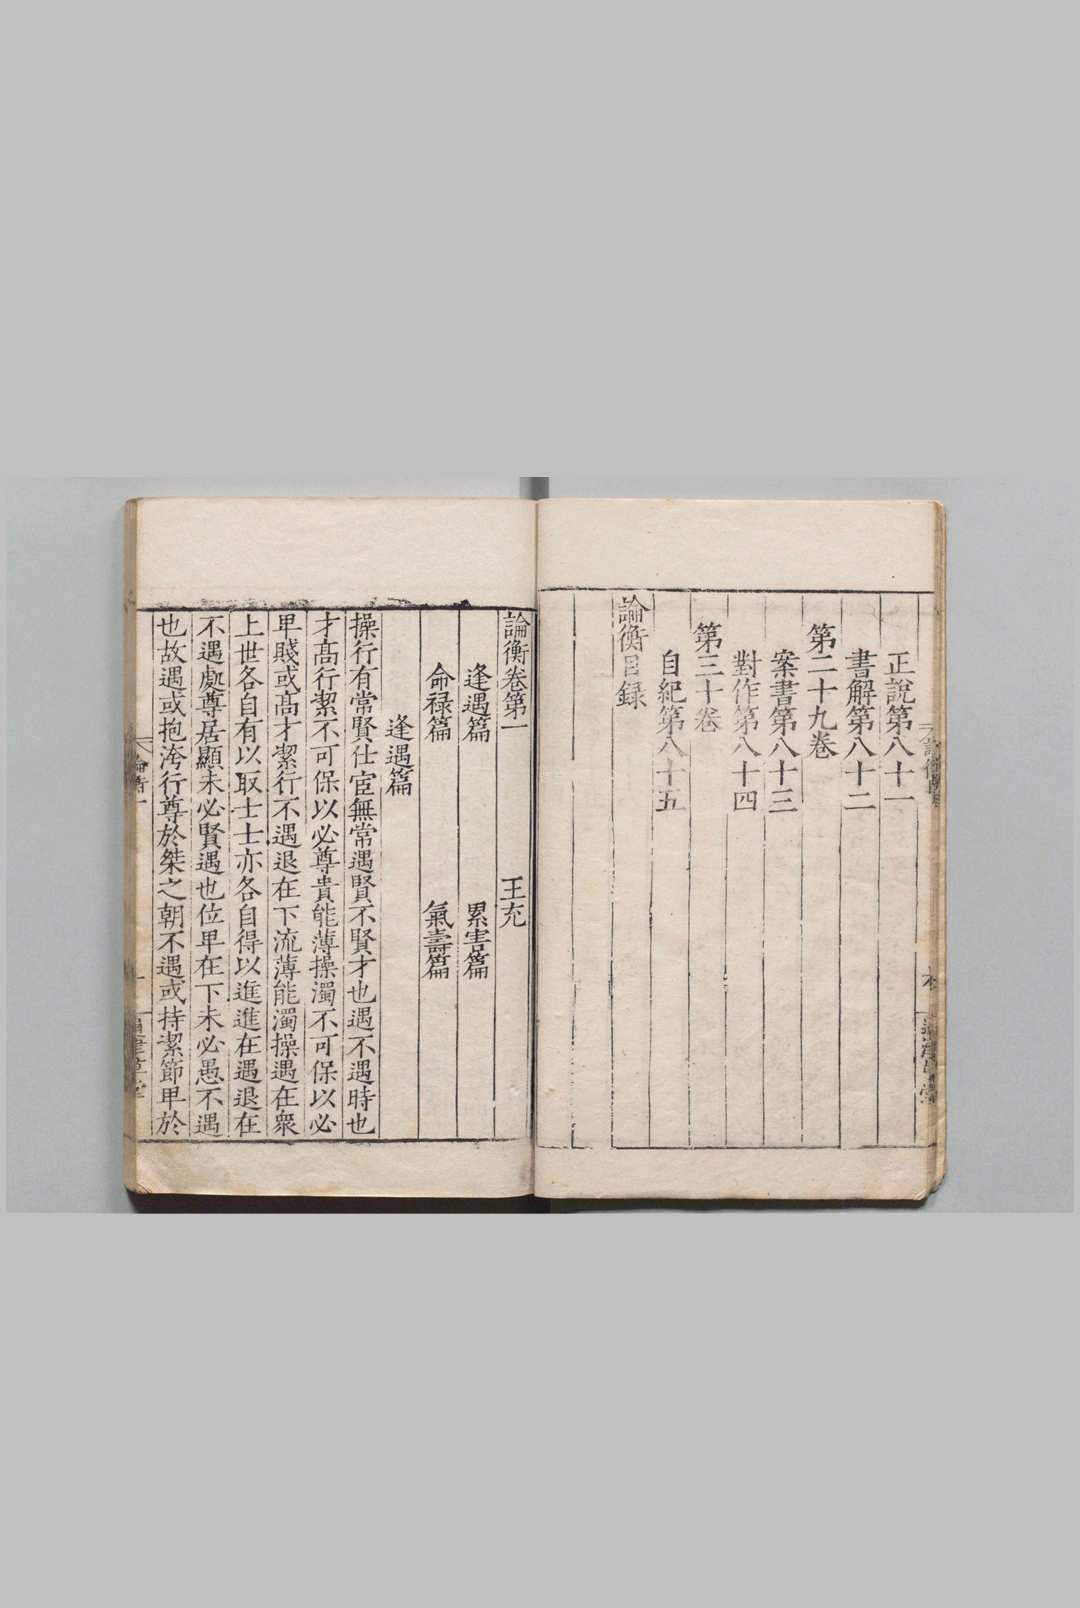 正說第八十一
書解第八十二
第二十九卷
案書第八十三
對作第八十四
第三十卷
自紀第八十五
論衡目録
論衡卷第一 王充
逢遇篇 累害篇
命禄篇 氣壽篇
逢遇篇
操行有常賢仕宦無常遇賢不賢才也遇不遇時也
才髙行潔不可保以必尊貴能薄操濁不可保以必
卑賤或髙才潔行不遇退在下流薄能濁操遇在衆
上世各自有以取士士亦各自得以進進在遇退在
不遇處尊居顯未必賢遇也位卑在下未必愚不遇
也故遇或抱洿行尊於桀之朝不遇或持潔節卑於
論衡一
通津草堂